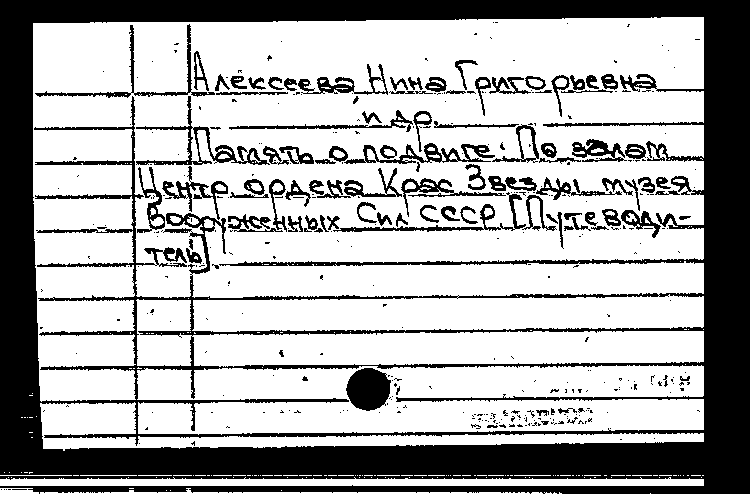 Алексеева Нина Григорьевна
и др.
Память о подвиге: По залам
Центр. ордена Крас Звезды музея
Вооруженных Сил СССР. [Путеводи-
тель]